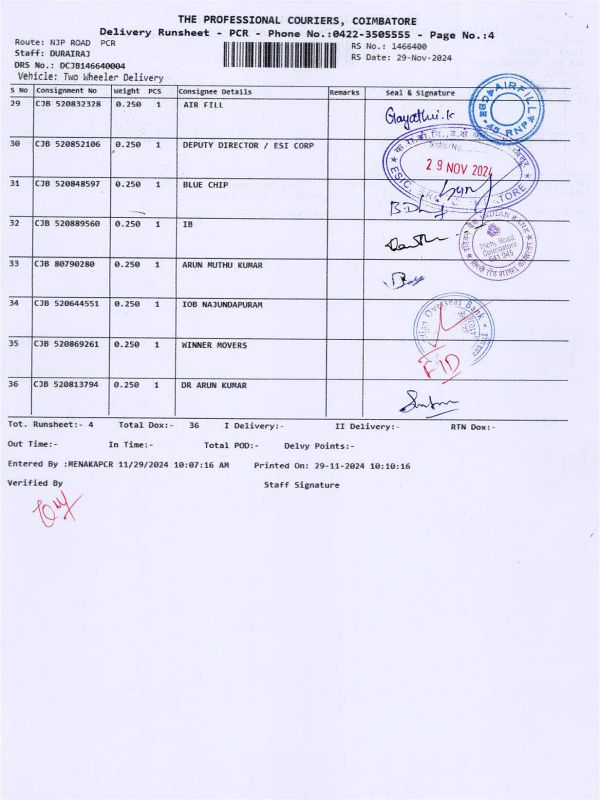 THE PROFESSIONAL COURIERS, COIMBATORE
Delivery Runsheet - PCR - Phone No.:0422-3505555 - Page No.:4
Route: NJP ROAD PCR
RS No.: 1466400
Staff: DURAIRAJ
RS Date: 29-Nov-2024
DRS No.: DCJB146640004
Vehicle: Two Wheeler Delivery
S No Consignment No Weight PCS Consignee Details Remarks Seal & Signature
29 CJB 520832328 0.250 1 AIR FILL Gayathri.K
AIRFILL CBE-45-RNP
30 CJB 520852106 0.250 1 DEPUTY DIRECTOR / ESI CORP
29 NOV 2024
31 CJB 520848597 0.250 1 BLUE CHIP
32 CJB 520889560 0.250 1 IB
INDIAN BANK
Trichy Road
Coimbatore
641 045
33 CJB 80790280 0.250 1 ARUN MUTHU KUMAR
34 CJB 520644551 0.250 1 IOB NAJUNDAPURAM
Overseas Bank
35 CJB 520869261 0.250 1 WINNER MOVERS
36 CJB 520813794 0.250 1 DR ARUN KUMAR
Tot. Runsheet:- 4 Total Dox:- 36 I Delivery:- II Delivery:- RTN Dox:-
Out Time:- In Time:- Total POD:- Delvy Points:-
Entered By :MENAKAPCR 11/29/2024 10:07:16 AM Printed On: 29-11-2024 10:10:16
Verified By Staff Signature